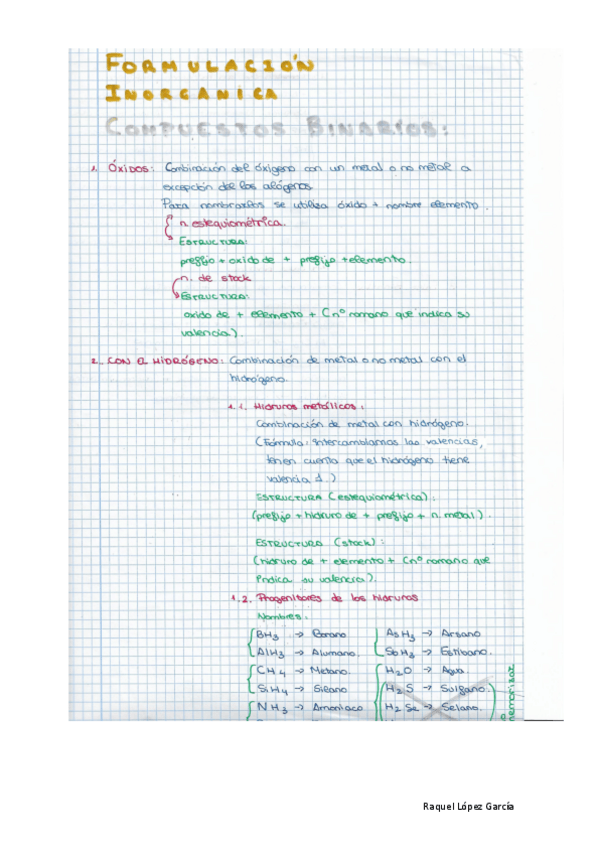 FORMULACIÓN
INORGÁNICA
COMPUESTOS BINARIOS:
1. ÓXIDOS: Combinación del óxigeno con un metal o no metal a
excepción de los alógenos.
Para nombrarlos se utiliza óxido + nombre elemento.
n estequiométrica.
ESTRUCTURA:
prefijo + oxido de + prefijo + elemento.
n. de stock
ESTRUCTURA:
oxido de + elemento + (nº romano que indica su
valencia).
2. CON EL HIDRÓGENO: Combinación de metal o no metal con el
hidrógeno.
1.1. Hidruros metálicos:
Combinación de metal con hidrógeno.
(Fórmula: Intercambiamos las valencias,
tenen cuenta que el hidrógeno tiene
valencia 1.)
ESTRUCTURA (estequiométrica):
(prefijo + hidruro de + prefijo + n. metal).
ESTRUCTURA (stock):
(hidruro de + elemento + (nº romano que
indica su valencia).
1.2. Progenitores de los hidruros
Nombres:
BH3 → Borano AsH3 → Arsano
AlH3 → Alumano. SbH3 → Estibano.
CH4 → Metano. H2O → Agua.
SiH4 → Silano H2S → Sulfano.
NH3 → Amoniaco H2Se → Selano.
memorizar
Raquel López García